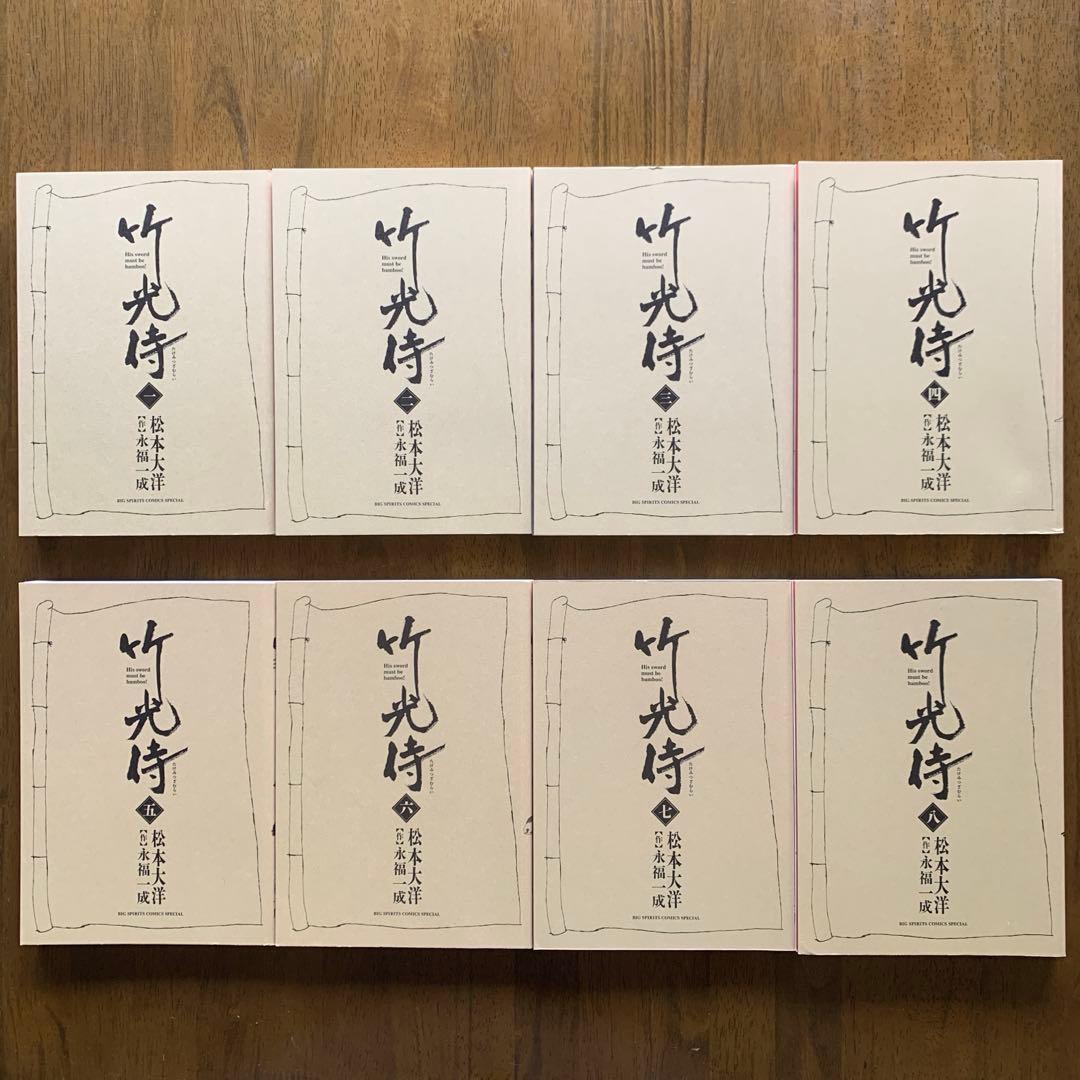 竹光侍
His sword
must be
bamboo!
たけみつざむらい
一
松本大洋
【作】永福一成
BIG SPIRITS COMICS SPECIAL
竹光侍
His sword
must be
bamboo!
たけみつざむらい
二
松本大洋
【作】永福一成
BIG SPIRITS COMICS SPECIAL
竹光侍
His sword
must be
bamboo!
たけみつざむらい
三
松本大洋
【作】永福一成
BIG SPIRITS COMICS SPECIAL
竹光侍
His sword
must be
bamboo!
たけみつざむらい
四
松本大洋
【作】永福一成
BIG SPIRITS COMICS SPECIAL
竹光侍
His sword
must be
bamboo!
たけみつざむらい
五
松本大洋
【作】永福一成
BIG SPIRITS COMICS SPECIAL
竹光侍
His sword
must be
bamboo!
たけみつざむらい
六
松本大洋
【作】永福一成
BIG SPIRITS COMICS SPECIAL
竹光侍
His sword
must be
bamboo!
たけみつざむらい
七
松本大洋
【作】永福一成
BIG SPIRITS COMICS SPECIAL
竹光侍
His sword
must be
bamboo!
たけみつざむらい
八
松本大洋
【作】永福一成
BIG SPIRITS COMICS SPECIAL